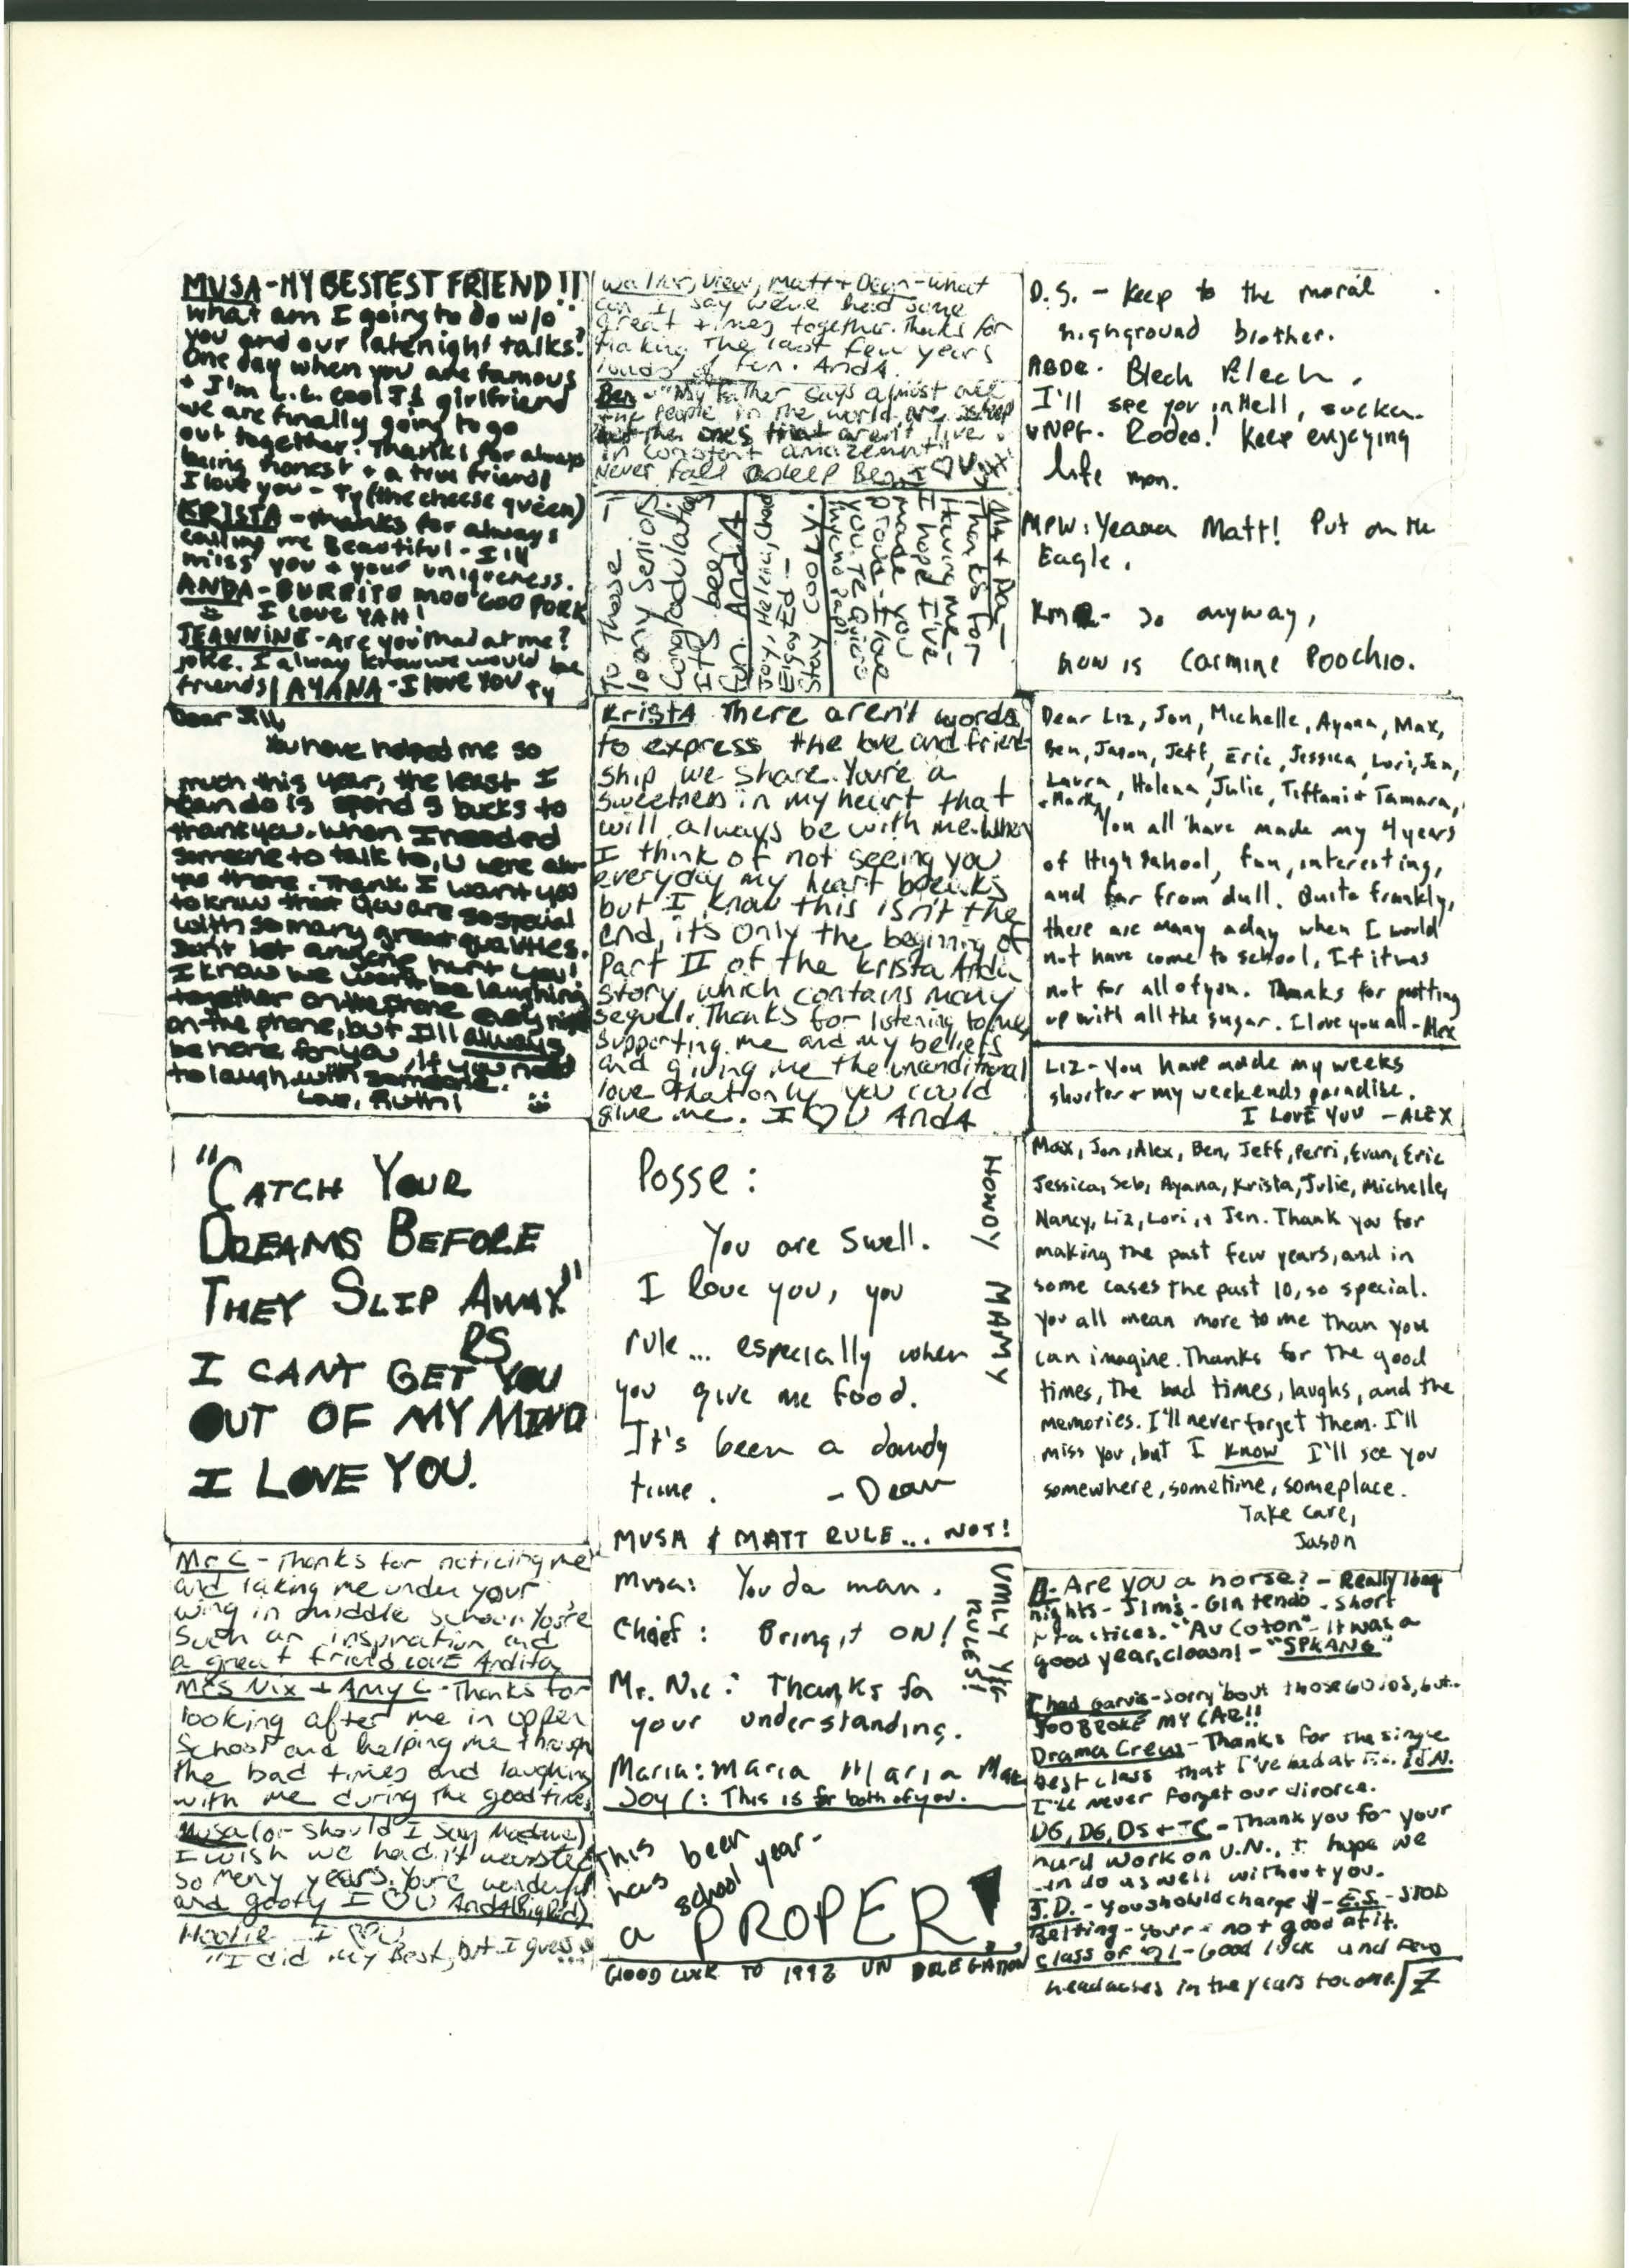 MUSA - MY BESTEST FRIEND!!
What am I going to do w/o
you and our latenight talks?
One day when you are famous
+ I'm cool girlfriend
we are finally going to go
out together. Thanks for always
being honest + a true friend!
I love you - Ty (the cheese queen)
KRISTA - thanks for always
calling me Beautiful - I'll
miss you + your uniqueness.
ANDA - BURRITO MOO GOO PORK
I LOVE YAH!
JEANNINE - Are you mad at me?
joke. I alway knew we would be
friends! AYANA - I love you Ty
Dear Jill,
You have helped me so
much this year, the least I
can do is spend 5 bucks to
thank you. When I needed
someone to talk to, U were alw-
ays there. Thank. I want you
to know that you are so special
with so many great qualities.
Don't let anyone hurt you!
I know we won't be laughing
together on the phone every night
on the phone, but I'll always
be here for you, if you need
to laugh with someone.
Love, Ruth!
"CATCH YOUR
DREAMS BEFORE
THEY SLIP AWAY"
PS
I CANT GET YOU
OUT OF MY MIND
I LOVE YOU.
Mr C - Thanks for noticing me
and taking me under your
wing in middle school. You're
such an inspiration and
a great friend LOVE Andita
Mrs Nix + Amy C - Thanks for
looking after me in upper
School and helping me through
the bad times and laughing
with me during the good times
Musa (or should I say Madame)
I wish we hadn't wasted
so many years. You're wonderful
and goofy I ♡ U AndA (Big Red)
Hootie I ♡ U
"I did my Best, but I guess...
Walter, View, Matt + Dean - what
can I say we've had some
great times together. Thanks for
making the last few years
loads of fun. AndA.
Ben - "My father says almost all
the people in the world are asleep
but the ones that aren't live
in constant amazement"
Never fall asleep Ben
To those
loony seniors
Congradulations
It's been
fun AndA
Joy, Helena, Chad
Ed -
Stay cool
Ma + Pa -
Thanks for
Having me -
I hope I've
made you
proud - I love
you. Te Quiero
KristA There aren't words
to express the love and friend
ship we share. You're a
sweetness in my heart that
will always be with me. When
I think of not seeing you
everyday my heart breaks
but I know this isn't the
end, it's only the beginnig of
Part II of the Krista Anda
story, which contains many
sequels. Thanks for listening to me,
supporting me and my beliefs
and giving me the unconditional
love that only you could
give me. I ♡ U AndA
Posse:
You are swell.
I love you, you
rule... especially when
you give me food.
It's been a dandy
time. - Dean
HOWDY MAMY
MUSA & MATT RULE... NOT!
Musa: You da man.
Chief: Bring it ON!
RULES!
Mr. Nic: Thanks for
your understanding.
Maria: Maria Maria Mar
Joy C: This is for both of you.
This been
has school year-
a PROPER!
GOOD LUCK TO 1992 UN DELEGATION
D.S. - Keep to the moral
highground brother.
ABDR. Blech Blech.
I'll see you in Hell, sucka.
VNPF. Rodeo! Keep enjoying
life mon.
MPW: Yeaaa Matt! Put on the
Eagle.
So anyway,
how is Carmine Poochio.
Dear Liz, Jon, Michelle, Ayana, Max,
Ben, Jason, Jeff, Eric, Jessica, Lori, Jen,
Laura, Helena, Julie, Tiffani + Tamara,
+ Mark,
You all have made my 4 years
of High School, fun, interesting,
and far from dull. Quite frankly,
there are many a day when I would
not have come to school, If it was
not for all of you. Thanks for putting
up with all the sugar. I love you all - Alex
Liz - You have made my weeks
shorter + my weekends paradise.
I LOVE YOU - ALEX
Max, Jon, Alex, Ben, Jeff, Perri, Evan, Eric
Jessica, Seb, Ayana, Krista, Julie, Michelle,
Nancy, Liz, Lori, + Jen. Thank you for
making the past few years, and in
some cases the past 10, so special.
You all mean more to me than you
can imagine. Thanks for the good
times, the bad times, laughs, and the
memories. I'll never forget them. I'll
miss you, but I know I'll see you
somewhere, sometime, someplace.
Take care,
Jason
A- Are you a horse? - Really long
nights - Jim's - Gintendo - short
practices. "Au Coton" - It was a
good year, clown! - "SPKANG"
Chad Garvis - Sorry 'bout those 60 lbs, but..
YOU BROKE MY CAR!!
Drama Crew - Thanks for the single
best class that I've had at J.N.
I'll never forget our divorce.
DG, DG, DS + TC - Thank you for your
hard work on U.N., I hope we
can do as well without you.
J.D. - You should charge $ - E.S. - STOP
Betting - Your not good at it.
Class of '91 - Good luck and few
headaches in the years to come.